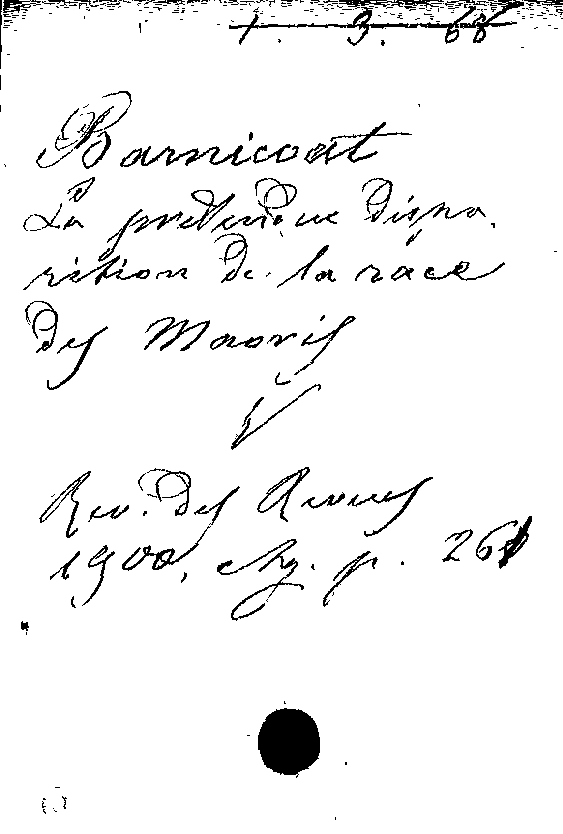 1. 3. 68
Barnicoat
La prétendue dispa.
rition de la race
des Maoris
Rev. des Revues
1900, p. 26